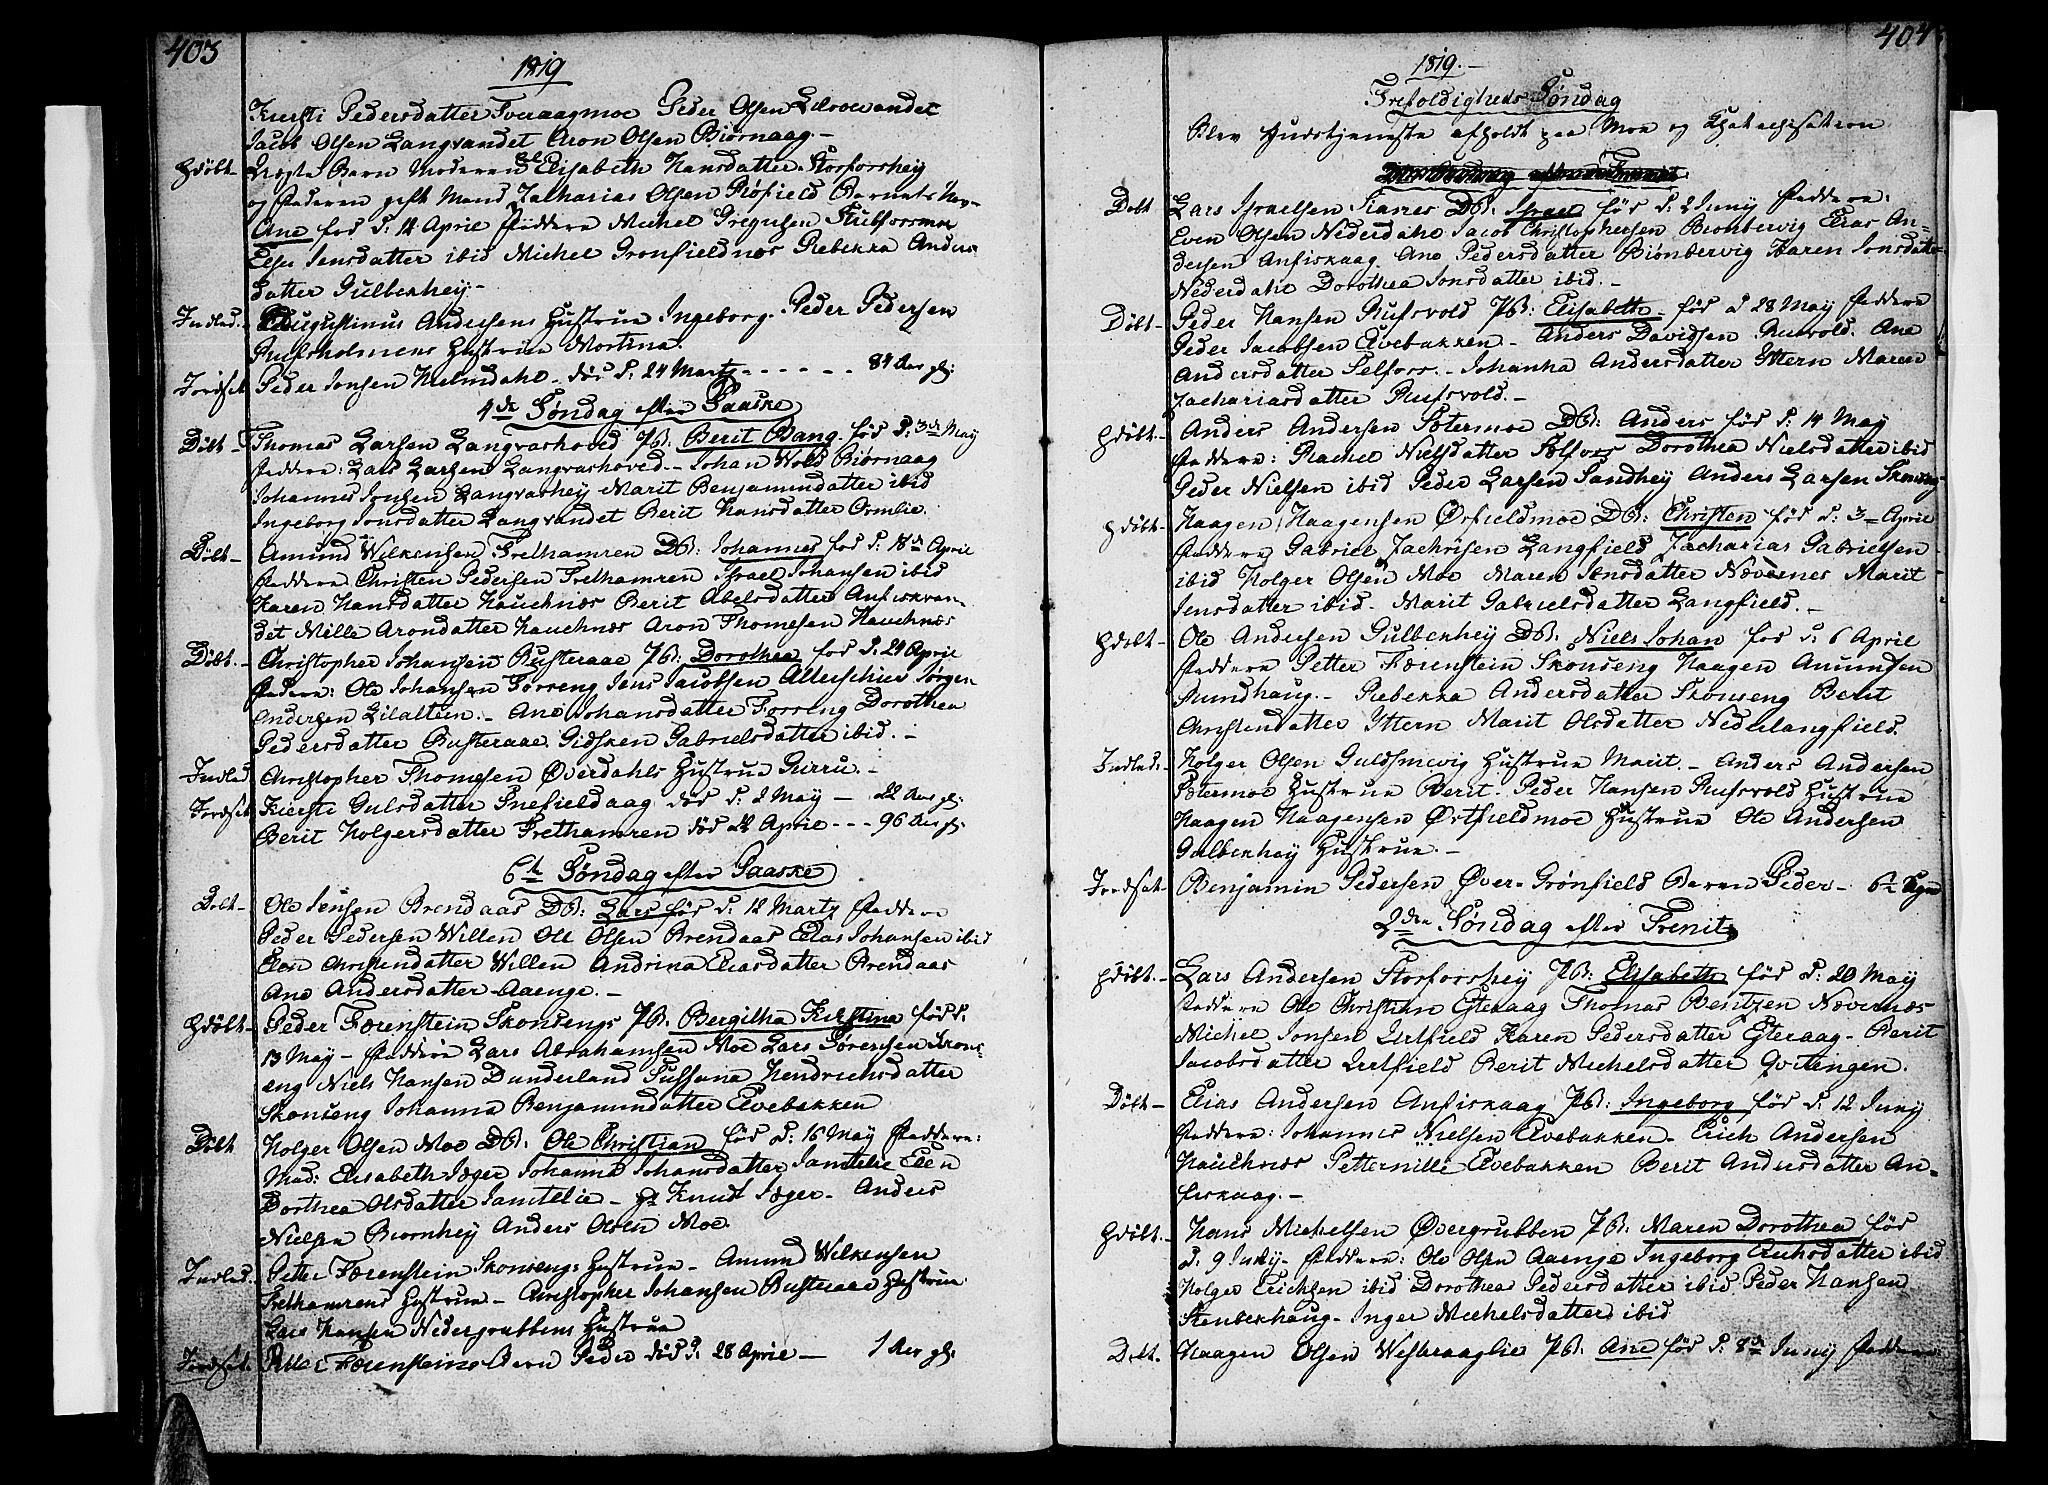 403
1819
Kiersti Pedersdatter Tveraagmoe Peder Olsen
Jacob Olsen Langvandet Aron Olsen Biørnaag –
Hdöbt – Uægte Barn Moderen Elisabeth Hansdatter Storforshey
og Faderen gift Mand Zacharias Olsen Röfield Barnets Nav
Ane fød d: 12 April Faddere Michel Gregusen Stubforsmoe
Jensdatter ibid Michel Grönfieldnæs Rebekka Anders
datter Gulbekhey –
Indled. Augustinus Andersens Hustrue Ingeborg. Peder Pedersen
Rufsholmens Hustrue Martina.
Jordfæst Peder Jonsen Helmdahl – död d: 24 Marts - - - - - - 84 Aar gl:
4de Söndag efter Paaske
Döbt – Thomas Larsen Langvashoved PB: Berit Bang föd d: 3de May
Faddere: Lars Larsen Langvashoved – Johan Wold Biörnaag
Johannes Jonsen Langvashey Marit Benjamindatter ibid
Ingeborg Jonsdatter Langvandet Berit Hansdatter Ormlie.
Döbt – Amund Wilkensen Frelhamren DB: Johannes föd d: 18de April
Faddere Christen Pedersen Frelhamren Israel Johansen ibid
Karen Hansdatter Hauchnæs Berit Abelsdatter Anfiskvan-
det Mille Arondatter Hauchnæs Aron Thomesen Hauchnæs
Döbt. – Christopher Johansen Busteraae PB: Dorothea fød d. 24 April
Faddere: Ole Johansen Forreng Jens Jacobsen Alterschier Jörgen
Andersen Lilaltien. – Ane Johansdatter Forreng Dorothea
Pedersdatter Busteraae Gidsken Gabrielsdatter ibid. –
Indled. Christopher Thomesen Överdahls Hustrue Gurru. –
Jordfæst Kiersti Gulsdatter Snefieldaag död d: 2 May – 22 Aar gl:
Berit Holgersdatter Frelhamren död 22 April - - - 96 Aar gl:
6te Söndag efter Paaske
Döbt – Ole Jensen Brendaas DB: Lars föd d: 12 Marty Faddere
Peder Pedersen Willen Ole Olsen Brendaas Elias Johansen ibid
Elen Christendatter Willen Andrina Eliasdatter Brendaas
Ane Andersdatter Aaenge. –
Hdöbt – Peder Færenstein Skonsengs PB. Bergitha Kirstina föd d.
13 May – Faddere Lars Abrahamsen Moe Lars Sörensen Skons-
eng Niels Hansen Dunderland Susanna Hendrichsdatter
Skonseng Johanna Benjamindatter Elvebakken
Döbt Holger Olsen Moe DB. Ole Christian föd d: 16 May Faddere:
Mad: Elisabeth Jæger Johanne Johansdatter Jamtelie Elen
Dorthea Olsdatter Jamtelie – Hr Knudt Jæger – Anders
Nielsen Biornhey Anders Olsen Moe.
Indled. Petter Færenstein Skonsengs Hustrue – Amund Wilkensen
Frelhamrens Hustrue – Christopher Johansen Busteraae Hustrue
Lars Hansen Nedergrubbens Hustrue
Jordfæst Petter Færensteins Barn Peder död d: 28 April – 1 Aar gl:
404
1819. –
Trefoldigheds Söndag
Blev Gudstjeneste afholdt paa Moe og Chatechisation
Döbt Lars Israelsen Kanes DB. Israel föd d: 2 Juny Faddere:
Even Olsen Nederdahl Jacob Christophersen Bionbervig Elias An-
dersen Anfiskaag Ane Pedersdatter Biönbervig Karen Jonsdatter
Nederdahl Dorothea Jonsdatter ibid. –
Döbt – Peder Hansen Rufsvold PB: Elisabeth – föd d 28 May Faddere
Peder Jacobsen Elvebakken – Anders Davidsen Rusvold. Ane
Andersdatter Selfors. – Johanna Andersdatter Yttern Maren
Zachariasdatter Rufsvold. –
Hdöbt. – Anders Andersen Sotermoe DB: Anders föd d: 14 May
Faddere: Rachel Nielsdatter Selfors Dorothea Nielsdatter ibid
Peder Nielsen ibid Peder Larsen Sandhey Anders Larsen Skonseng
Hdöbt – Haagen Haagensen Örfieldmoe DB: Christen föd d: 3 – April
Faddere Gabriel Zachrisen Langfield Zacharias Gabrielsen
ibid Holger Olsen Moe Maren Jensdatter Nævernes Marit
Jensdatter ibid – Marit Gabrielsdatter Langfield. –
Hdöbt – Ole Andersen Gulbekhey DB. Niels Johan föd d: 6 April
Faddere Petter Færenstein Skonseng Haagen Amundsen
Rundhaug. – Rebekka Andersdatter Skonseng Berit
Christendatter Yttern Marit Olsdatter Nederlangfield.
Indled. – Holger Olsen Guldsmevig Hustrue Marit. – Anders Andersen
Sotermoe Hustrue Berit – Peder Hansen Rufsvold Hustrue
Haagen Haagensen Örtfieldmoe Hustrue Ole Andersen
Gulbekhey Hustrue. –
Jordfæst – Benjamin Pedersen Över-Grönfield Barn Peder – 6
2den Söndag efter Trenit:
Hdöbt. – Lars Andersen Storforshey PB: Elisabeth föd d: 20 May
Faddere Ole Christian Esteraag Thomas Bentzen Nævernæs
Michel Jonsen Urtfield Karen Pedersdatter Esteraag – Berit
Jacobsdatter Urtfield Berit Michelsdatter Qvitingen.
Döbt – Elias Andersen Anfiskaag PB: Ingeborg föd d: 12 Juny
Faddere: Johannes Nielsen Elvebakken – Erich Andersen
Hauchnæs Petternille Elvebakken Berit Andersdatter An-
fiskaag. –
Hdöbt. – Hans Michelsen Övergrubben PB. Maren Dorothea föd
d. 9 Juny – Faddere: Ole Olsen Aaenge Ingeborg Erichsdatter ibid
Holger Erichsen ibid Dorothea Pedersdatter ibid Peder Hansen
Stenbekhaug – Inger Michelsdatter ibid
Döbt. Haagen Olsen Westeraaglie PB. Ane föd d: 8de Juny Faddere